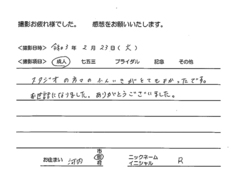 撮影お疲れ様でした。 感想をお願いいたします。
<撮影日時> 令和3年 2月 23日(火)
<撮影項目> 成人 七五三 ブライダル 記念 その他
スタジオの方々のふんいきがとてもよかったです。
お世話になりました。ありがとうございました。
お住まい 市 郡 府
ニックネーム イニシャル R